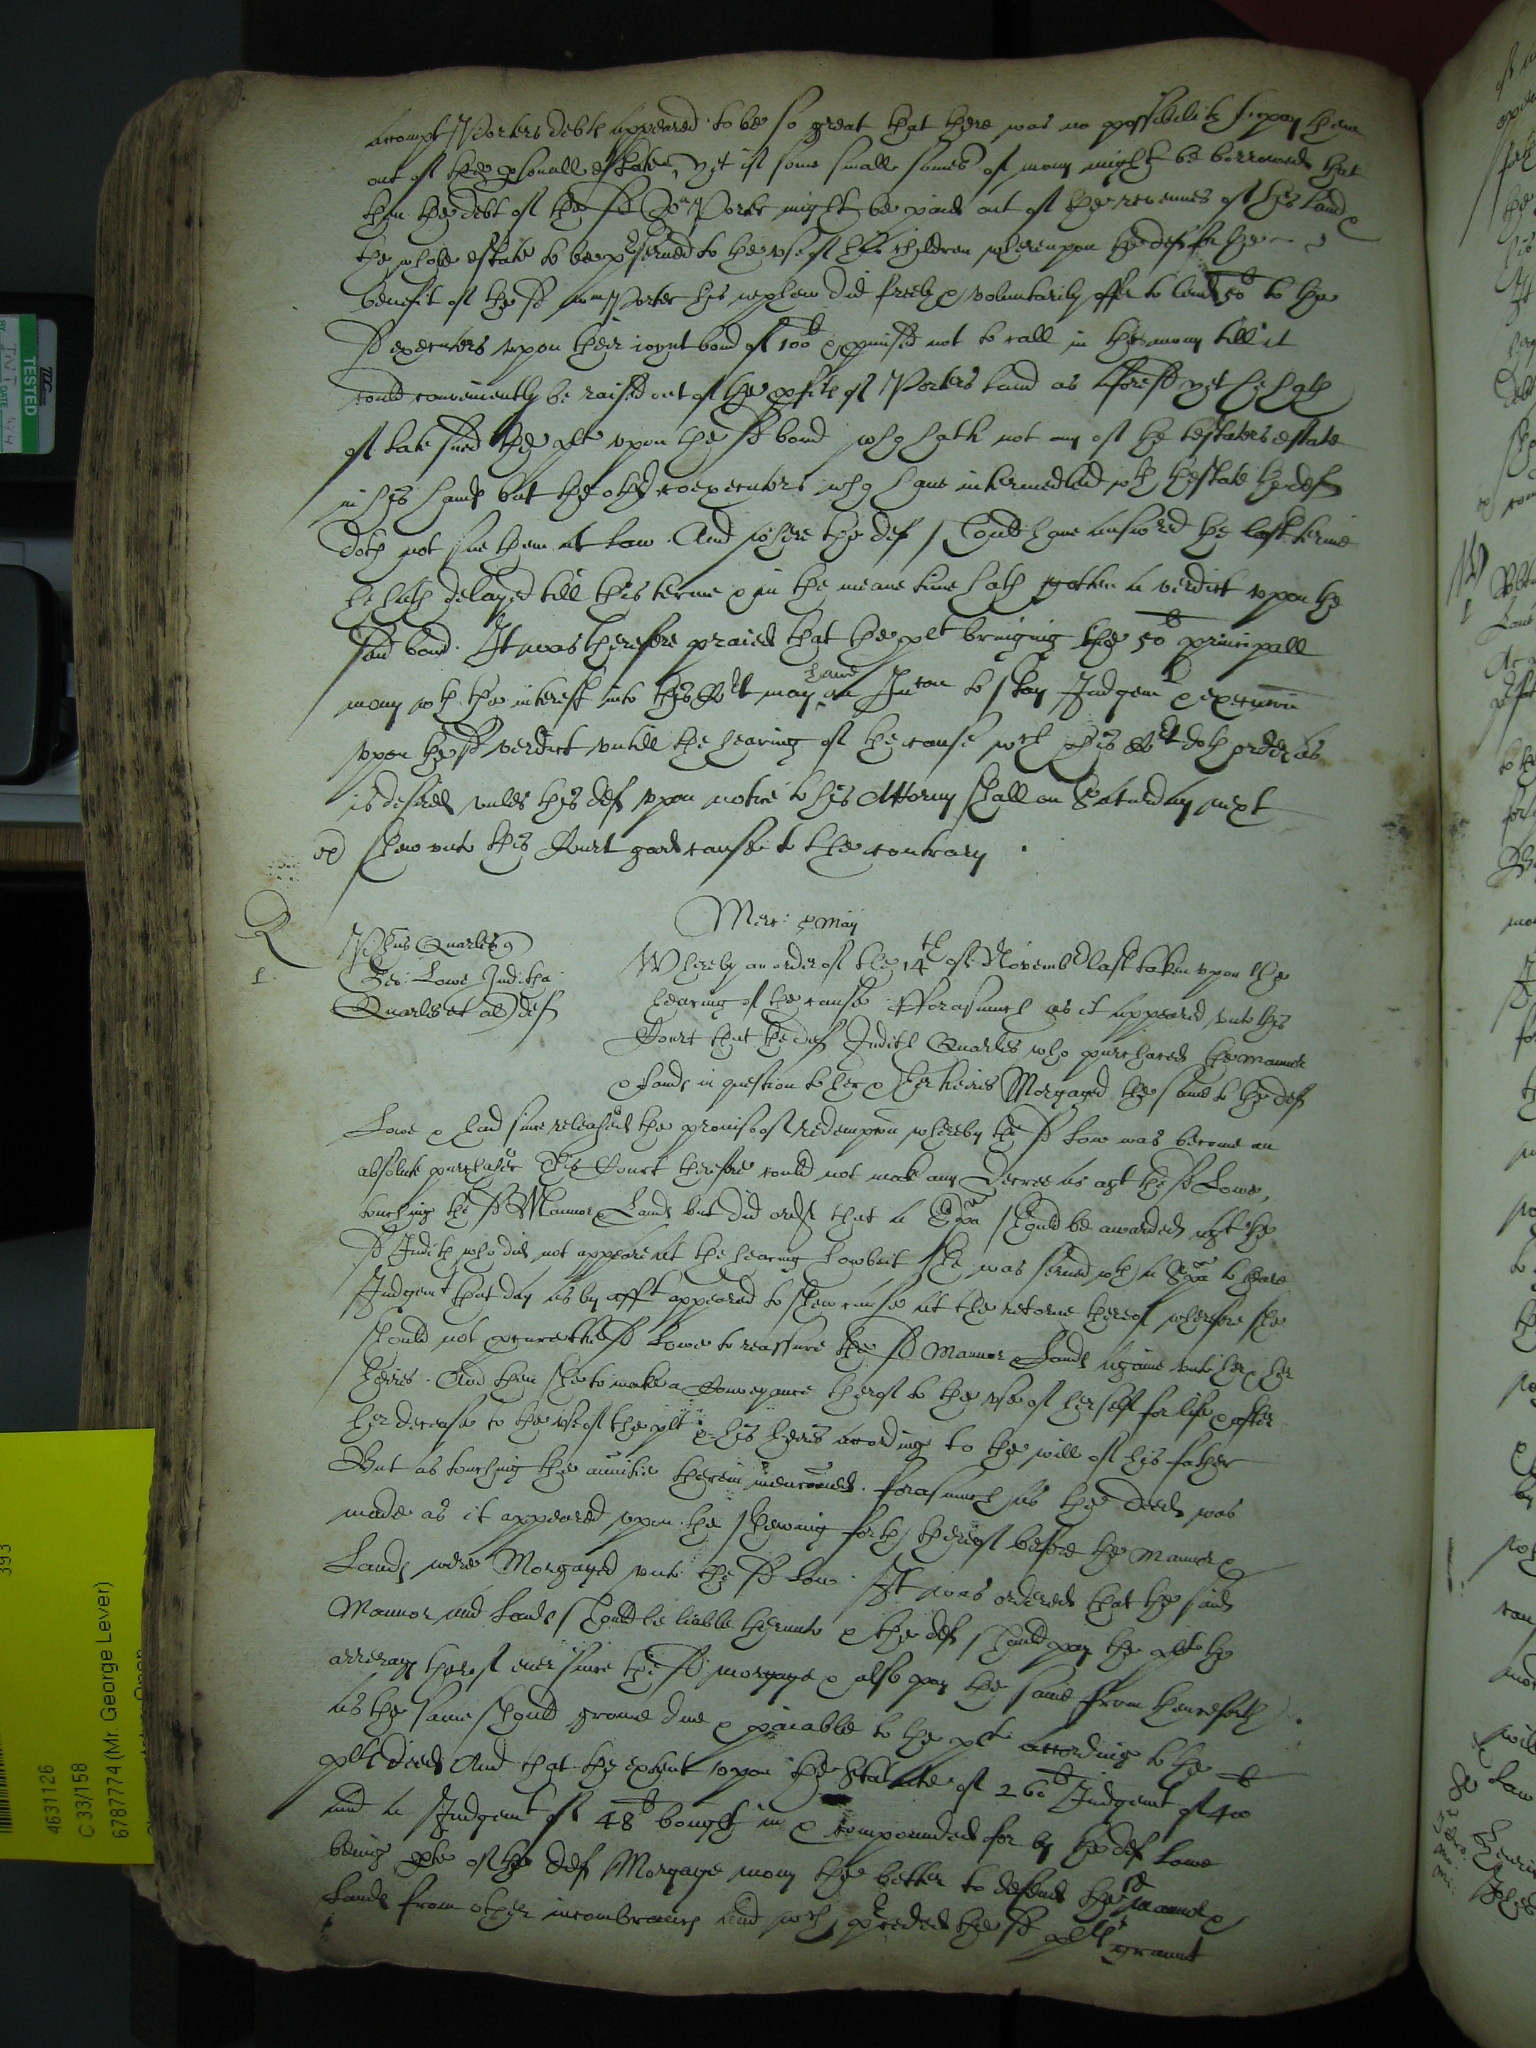 accompt Porters debts appeared to be so great that there was no possibilitie to pay them
out of the psonall estate, yet if some small somes of mony might be borrowed that
then the debt of the sd Wm Porter might be paid out of the revenues of his land &
the whole estate to be pserved to the use of his children whereupon the def for the
benefit of the sd Wm Porter his nephew did freely & voluntarily offer to lend 50l to the
sd executors upon their ioynt bond of 100l & pmised not to call in the mony till it
could conveniently be raised out of the pfitts of Porters land as aforesd yet he hath
of late sued the plt upon the sd bond who hath not any of the testators estate
in his hands but the other coexecutors who have intermedled wth thestate the def
doth not sue them at law. And where the def should have answered the last terme
he hath delayed till this terme & in the meane time hath gotten a verdict upon the
said bond. It was therefore praied that the plt bringing the 50l principall
mony wth the interest into this Cort may have an Inion to stay Judgemt & execution
upon the sd verdict untill the hearing of the cause wch this Cort doth order as
is desired unles this def upon notice to his Attorny shall on Saturday next
shew unto this Court good cause to the contrary.
Merc: May
R
1
Quarles
Lowe Juditha
Quarles et al def
Whereby an order of the 14th of November last taken upon the
hearing of the cause. fforasmuch as it appeared unto this
Court that the def Judith Quarles who purchased the mannor
& lands in question to her & her heires Morgaged the same to the def
Lowe & had since released the proviso of redempcon whereby the sd Low was become an
absolute purchaser This Court therefore could not make any Decree as agt the sd Lowe,
touching the sd Mannor & Lands but did order that a Spa should be awarded agt the
sd Judith who did not appeare at the hearing howbeit she was served wth a Spa to heare
Judgemt that day as by afft appeared to shew cause at the retorne thereof wherefore she
should not pcure the sd Lowe to reassure the sd mannor & Lands againe unto her & her
heires. And then she to make a Conveyance therof to the use of herself for life & after
her decease to the use of the plt & his heires acording to the will of his father
But as touching the annitie therein menconed. forasmuch as the deed was
made as it appeared upon the shewing forth thereof before the mannor &
Lands were Morgaged unto the sd Low. It was ordered that the said
Mannor and Lands should be liable thereunto & the def should pay the plt the
arrerags therof ever since the sd morgage & also pay the same from henceforth
as the same should growe due & paiable to the plt according to the
plts deed And that the extent upon the Statute of 260l Judgemt of 400
and a Judgemt of 48l bought in & compounded for by the def Lowe
being pte of the def Morgage mony the better to defend the sd mannor &
Lands from other incombrances and wch preceded the sd plts graunt
TESTED
393
4631126
C 33/158
6787774 (Mr. George Lever)